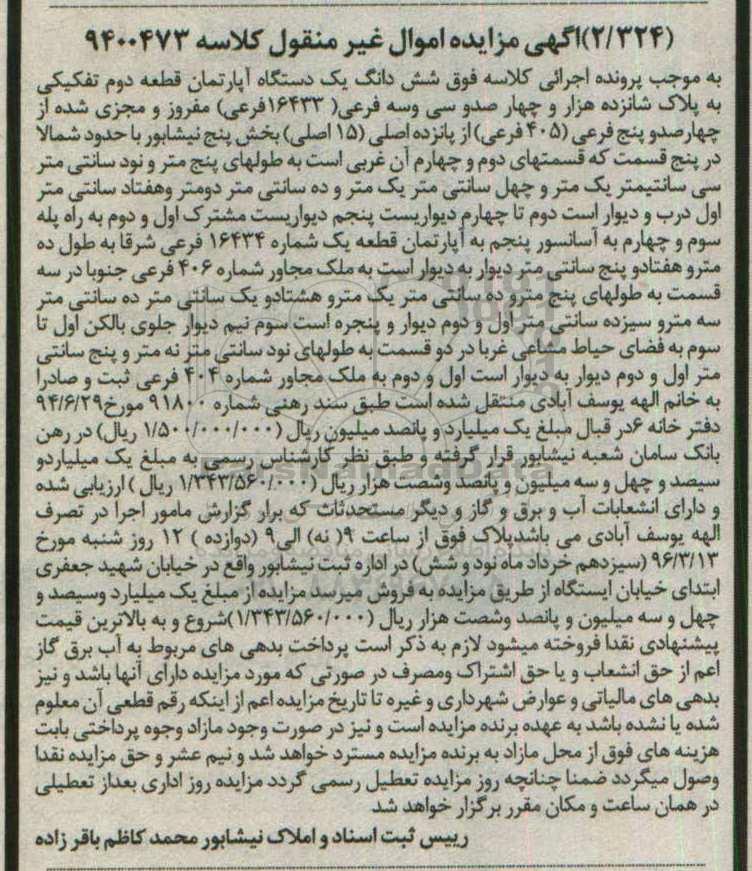 (۲/۳۲۴)آگهی مزایده اموال غیر منقول کلاسه ۹۴۰۰۴۷۳
به موجب پرونده اجرائی کلاسه فوق شش دانگ یک دستگاه آپارتمان قطعه دوم تفکیکی
به پلاک شانزده هزار و چهار صدو سی وسه فرعی( ۱۶۴۳۳فرعی) مفروز و مجزی شده از
چهارصدو پنج فرعی (۴۰۵ فرعی) از پانزده اصلی (۱۵ اصلی) بخش پنج نیشابور با حدود شمالا
در پنج قسمت که قسمتهای دوم و چهارم آن غربی است به طولهای پنج متر و نود سانتی متر
سی سانتیمتر یک متر و چهل سانتی متر یک متر و ده سانتی متر دومتر وهفتاد سانتی متر
اول درب و دیوار است دوم تا چهارم دیواریست پنجم دیواریست مشترک اول و دوم به راه پله
سوم و چهارم به آسانسور پنجم به آپارتمان قطعه یک شماره ۱۶۴۳۴ فرعی شرقا به طول ده
مترو هفتادو پنج سانتی متر دیوار به دیوار است به ملک مجاور شماره ۴۰۶ فرعی جنوبا در سه
قسمت به طولهای پنج مترو ده سانتی متر یک مترو هشتادو یک سانتی متر ده سانتی متر
سه مترو سیزده سانتی متر اول و دوم دیوار و پنجره است سوم نیم دیوار جلوی بالکن اول تا
سوم به فضای حیاط مشاعی غربا در دو قسمت به طولهای نود سانتی متر نه متر و پنج سانتی
متر اول و دوم دیوار به دیوار است اول و دوم به ملک مجاور شماره ۴۰۴ فرعی ثبت و صادرا
به خانم الهه یوسف آبادی منتقل شده است طبق سند رهنی شماره ۹۱۸۰۰ مورخ۹۴/۶/۲۹
دفتر خانه ۶در قبال مبلغ یک میلیارد و پانصد میلیون ریال (۱/۵۰۰/۰۰۰/۰۰۰ ریال) در رهن
بانک سامان شعبه نیشابور قرار گرفته و طبق نظر کارشناس رسمی به مبلغ یک میلیاردو
سیصد و چهل و سه میلیون و پانصد وشصت هزار ریال (۱/۳۴۳/۵۶۰/۰۰۰ ریال ) ارزیابی شده
و دارای انشعابات آب و برق و گاز و دیگر مستحدثات که برار گزارش مامور اجرا در تصرف
الهه یوسف آبادی می باشدپلاک فوق از ساعت ۹( نه) الی۹ (دوازده ) ۱۲ روز شنبه مورخ
۹۶/۳/۱۳ (سیزدهم خرداد ماه نود و شش) در اداره ثبت نیشابور واقع در خیابان شهید جعفری
ابتدای خیابان ایستگاه از طریق مزایده به فروش میرسد مزایده از مبلغ یک میلیارد وسیصد و
چهل و سه میلیون و پانصد وشصت هزار ریال (۱/۳۴۳/۵۶۰/۰۰۰)شروع و به بالاترین قیمت
پیشنهادی نقدا فروخته میشود لازم به ذکر است پرداخت بدهی های مربوط به آب برق گاز
اعم از حق انشعاب و یا حق اشتراک ومصرف در صورتی که مورد مزایده دارای آنها باشد و نیز
بدهی های مالیاتی و عوارض شهرداری و غیره تا تاریخ مزایده اعم از اینکه رقم قطعی آن معلوم
شده یا نشده باشد به عهده برنده مزایده است و نیز در صورت وجود مازاد وجوه پرداختی بابت
هزینه های فوق از محل مازاد به برنده مزایده مسترد خواهد شد و نیم عشر و حق مزایده نقدا
وصول میگردد ضمنا چنانچه روز مزایده تعطیل رسمی گردد مزایده روز اداری بعداز تعطیلی
در همان ساعت و مکان مقرر برگزار خواهد شد
رییس ثبت اسناد و املاک نیشابور محمد کاظم باقر زاده